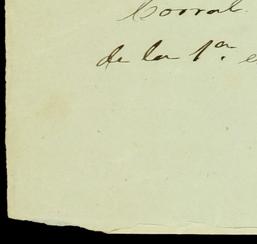 Corral.
de la 1ª.